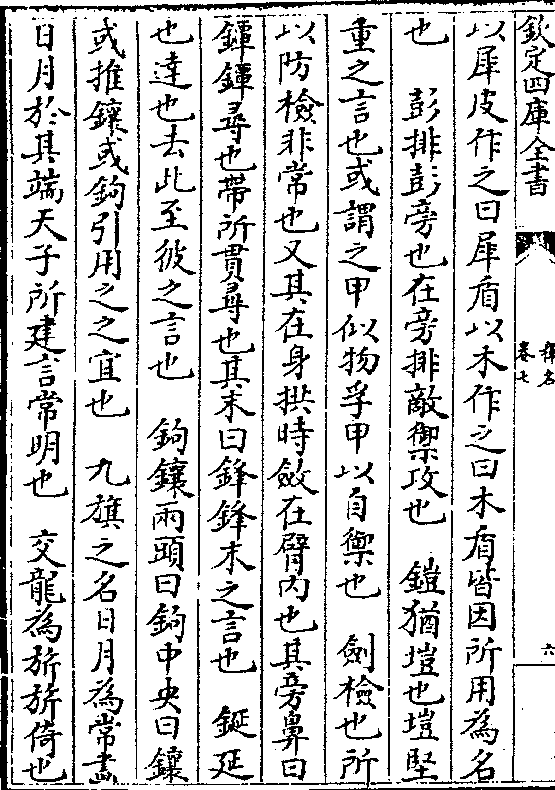 欽定四庫全書
釋名
卷七
六
以犀皮作之曰犀盾以木作之曰木盾皆因所用為名
也　彭排彭旁也在旁排敵禦攻也　鎧猶塏也塏堅
重之言也或謂之甲似物孚甲以自禦也　劍檢也所
以防檢非常也又其在身拱時斂在臂內也其旁鼻曰
鐔鐔尋也帶所貫尋也其末曰鋒鋒末之言也　鋋延
也達也去此至彼之言也　鉤鑲兩頭曰鉤中央曰鑲
或推鑲或鉤引用之之宜也　九旗之名日月為常畫
日月於其端天子所建言常明也　交龍為旂旂倚也